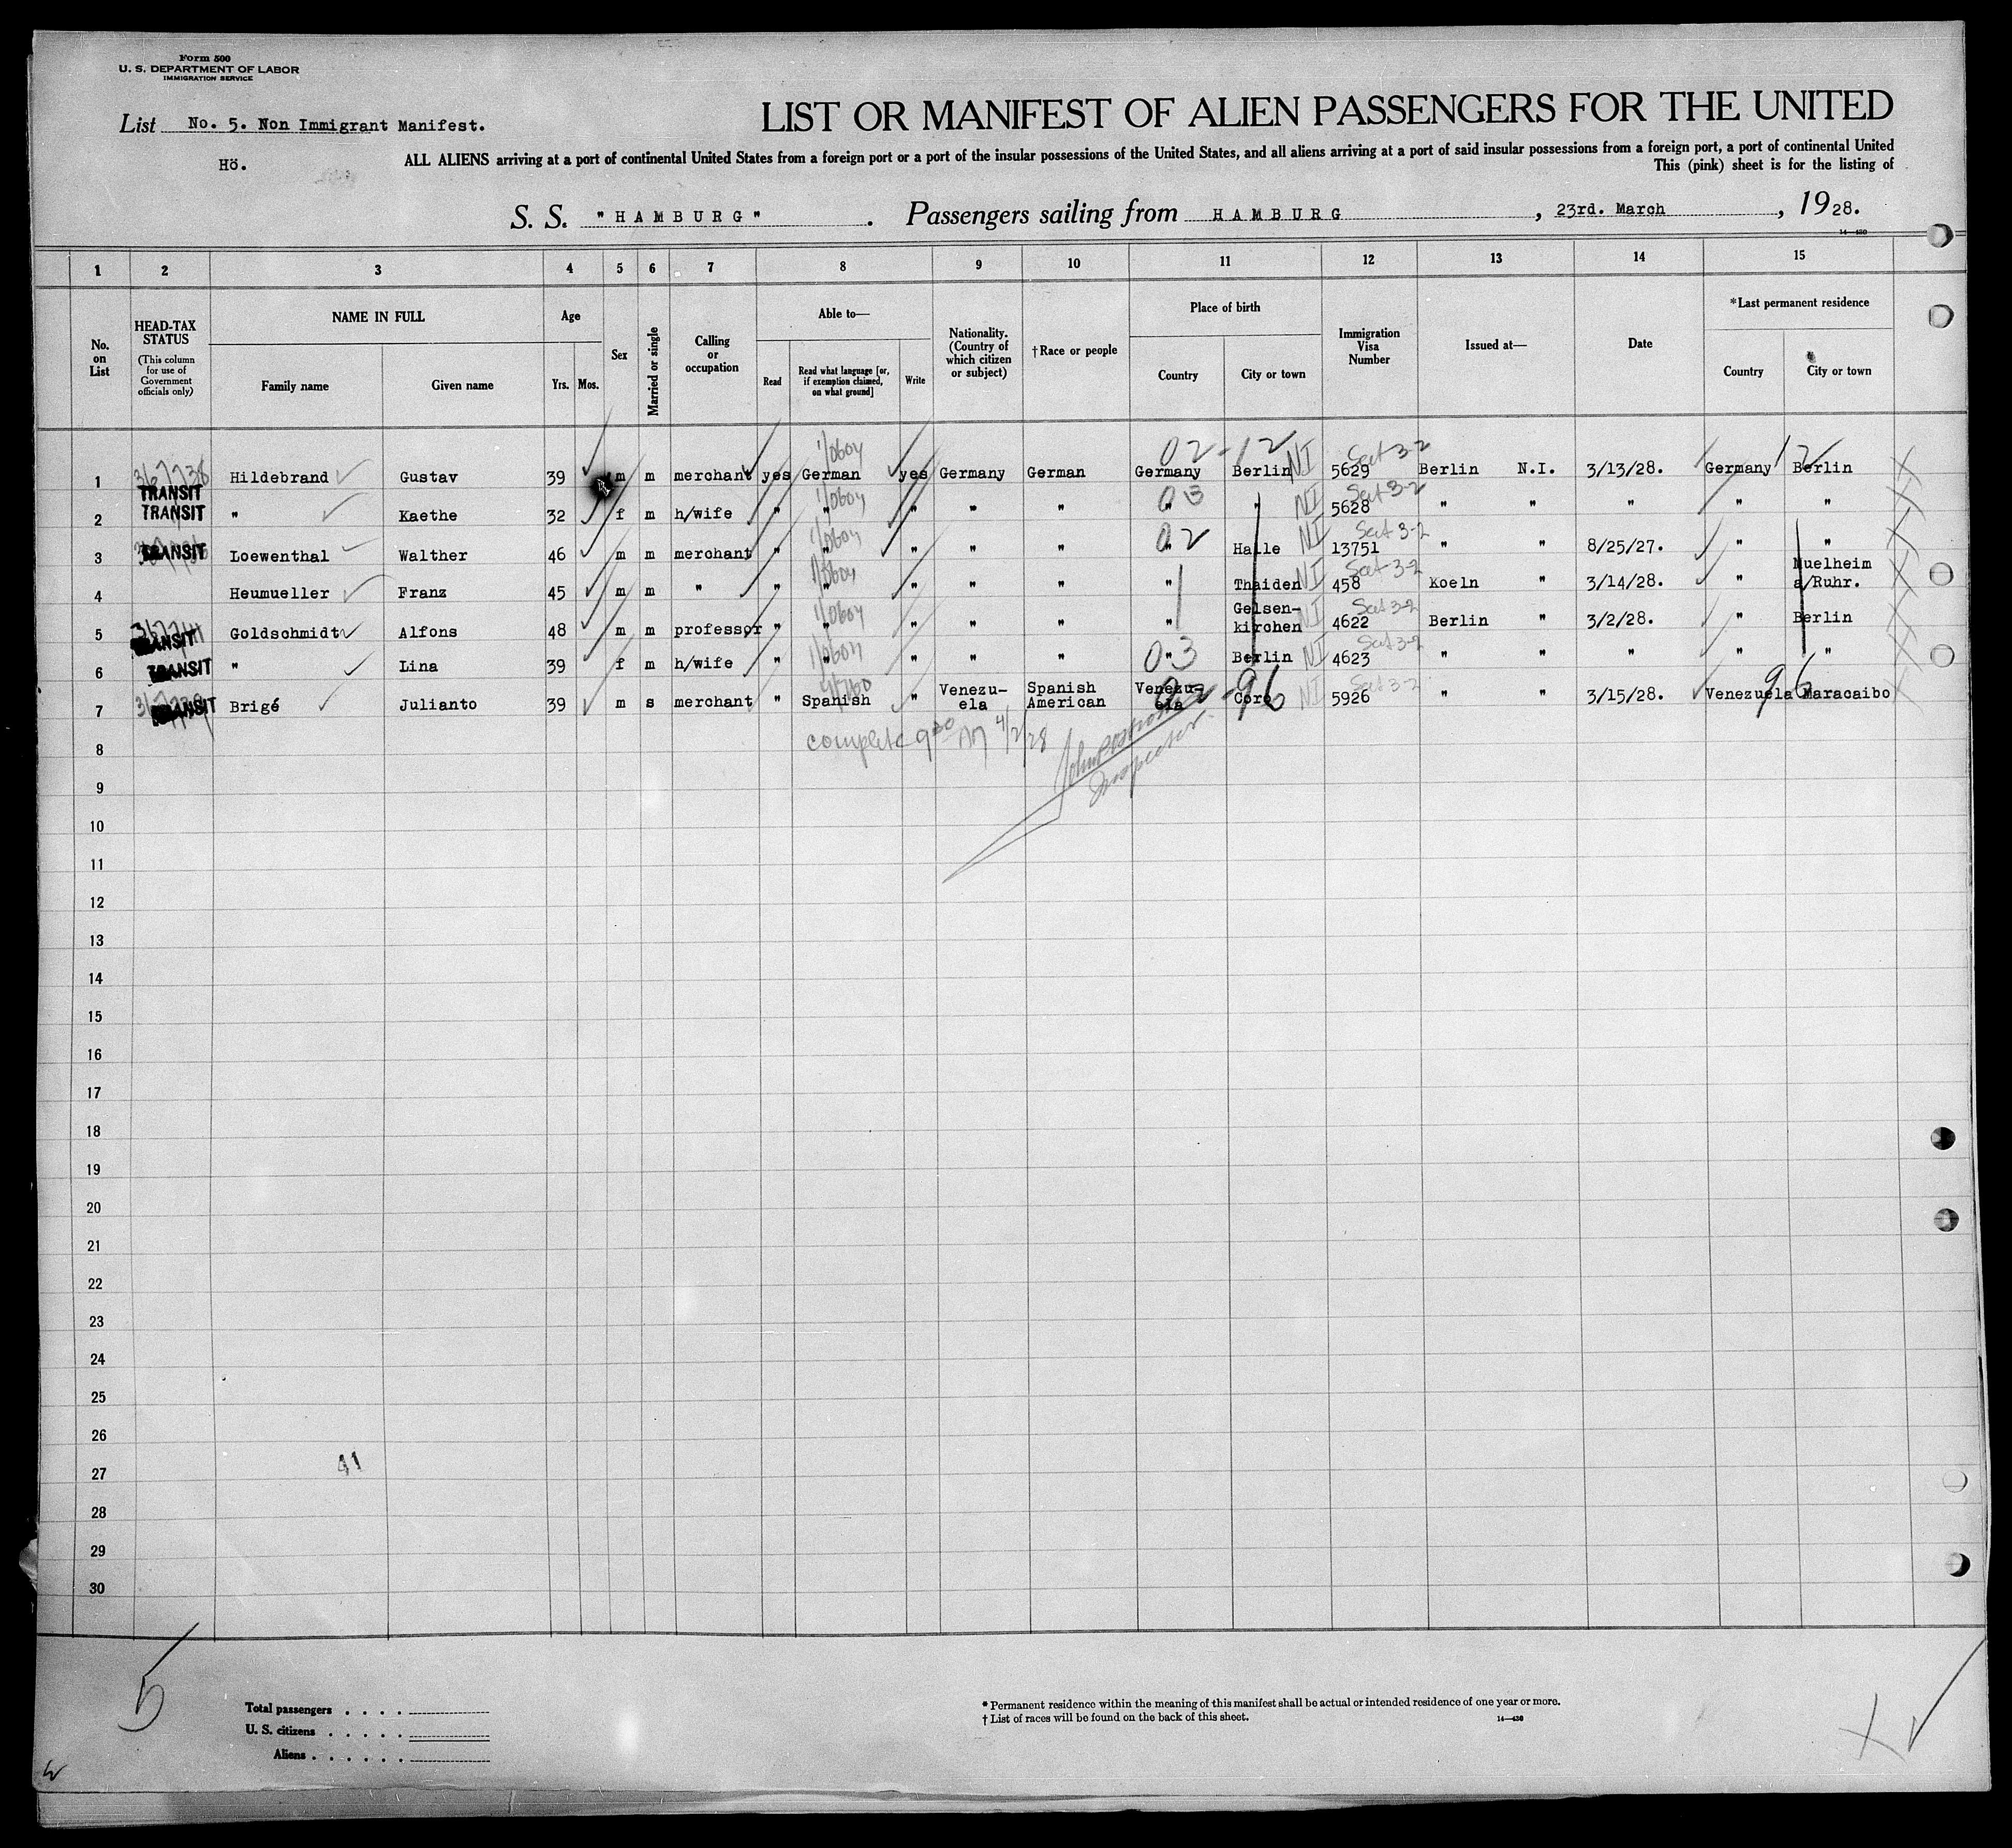 Form 500
U. S. DEPARTMENT OF LABOR
IMMIGRATION SERVICE
List No. 5. Non Immigrant Manifest.
Hö.
LIST OR MANIFEST OF ALIEN PASSENGERS FOR THE UNITED
ALL ALIENS arriving at a port of continental United States from a foreign port or a port of the insular possessions of the United States, and all aliens arriving at a port of said insular possessions from a foreign port, a port of continental United
This (pink) sheet is for the listing of
S. S. "HAMBURG". Passengers sailing from HAMBURG, 23rd. March, 1928.
14—430
1 2 3 4 5 6 7 8 9 10 11 12 13 14 15
No. on List
HEAD-TAX STATUS
(This column for use of Government officials only)
NAME IN FULL
Family name
Given name
Age
Yrs. Mos.
Sex
Married or single
Calling or occupation
Able to—
Read
Read what language [or, if exemption claimed, on what ground]
Write
Nationality. (Country of which citizen or subject)
†Race or people
Place of birth
Country
City or town
Immigration Visa Number
Issued at—
Date
*Last permanent residence
Country
City or town
02-12 Sect 3-2 12
1 367738 TRANSIT Hildebrand Gustav 39 m m merchant yes German yes Germany German Germany Berlin NI 5629 Berlin N.I. 3/13/28. Germany Berlin
03 Sect 3-2
2 TRANSIT " Kaethe 32 f m h/wife " " " " " " " NI 5628 " " " " "
02 Sect 3-2
3 TRANSIT Loewenthal Walther 46 m m merchant " " " " " " Halle NI 13751 " " 8/25/27. " "
Sect 3-2
4 Heumueller Franz 45 m m " " " " " " " Thaiden NI 458 Koeln " 3/14/28. " Muelheim a/Ruhr.
Sect 3-2
5 TRANSIT Goldschmidt Alfons 48 m m professor " " " " " " Gelsen-kirchen NI 4622 Berlin " 3/2/28. " Berlin
03 Sect 3-2
6 TRANSIT " Lina 39 f m h/wife " " " " " " Berlin NI 4623 " " " " "
02-96 Sect 3-2 96
7 TRANSIT Brigé Julianto 39 m s merchant " Spanish " Venezu-ela Spanish American Venezu-ela Coro NI 5926 " " 3/15/28. Venezuela Maracaibo
complete 9 30 AM 4/2/28
Inspector.
8
9
10
11
12
13
14
15
16
17
18
19
20
21
22
23
24
25
26
27
41
28
29
30
5
Total passengers . . . .
U. S. citizens . . . . .
Aliens . . . . . .
* Permanent residence within the meaning of this manifest shall be actual or intended residence of one year or more.
† List of races will be found on the back of this sheet.
14—430